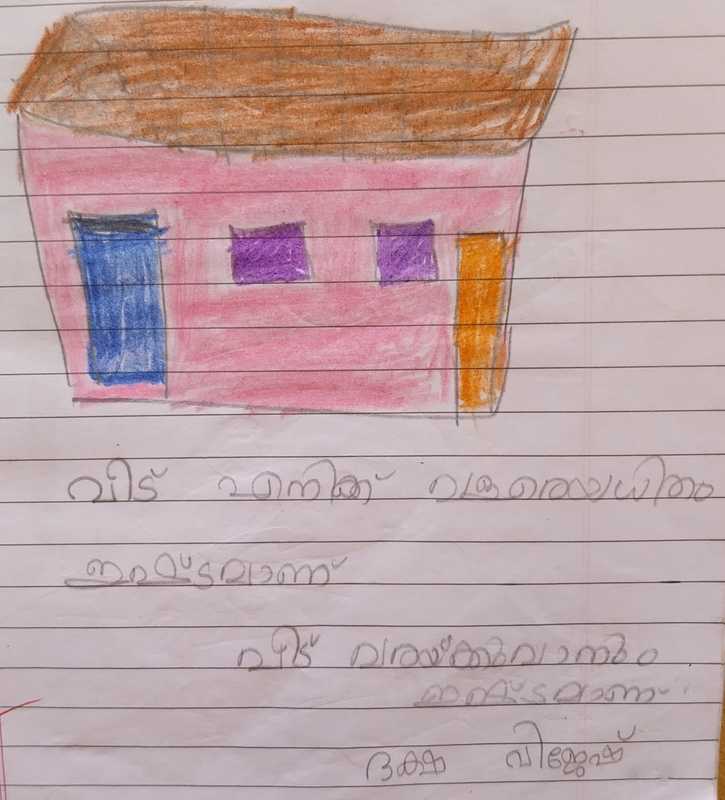 വീട് എനിക്ക് വളരെയധികം
ഇഷ്ടമാണ്
വീട് വരയ്ക്കുവാനും
ഇഷ്ടമാണ്
ദക്ഷ വിജേഷ്